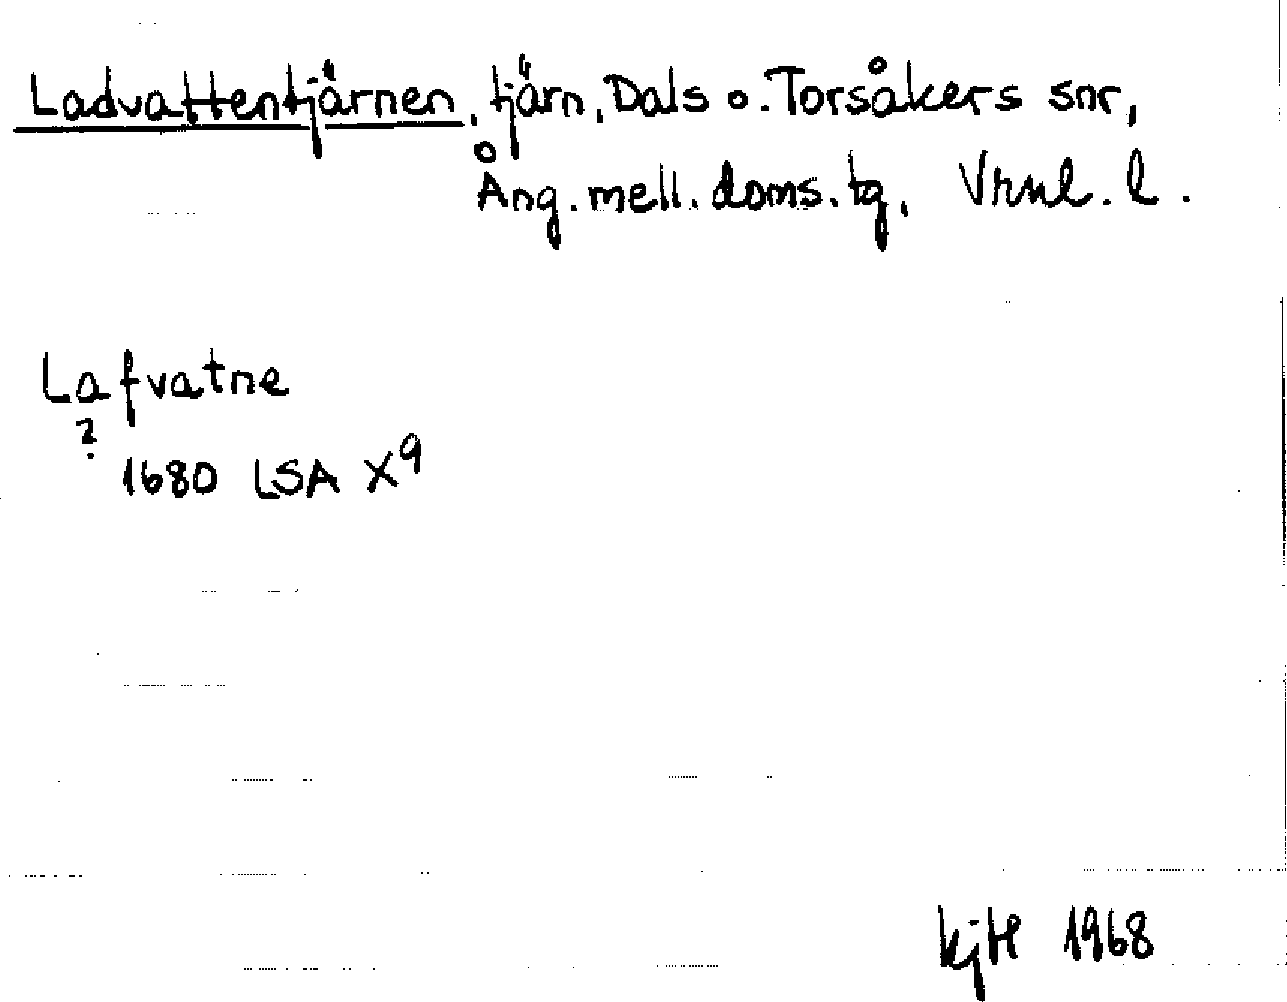 Ladvattentjärnen, tjärn, Dals o. Torsåkers snr,
Ång. mell. doms. tg, Vrnl. l.
Lafvatne
?
1680 LSA X9
1968